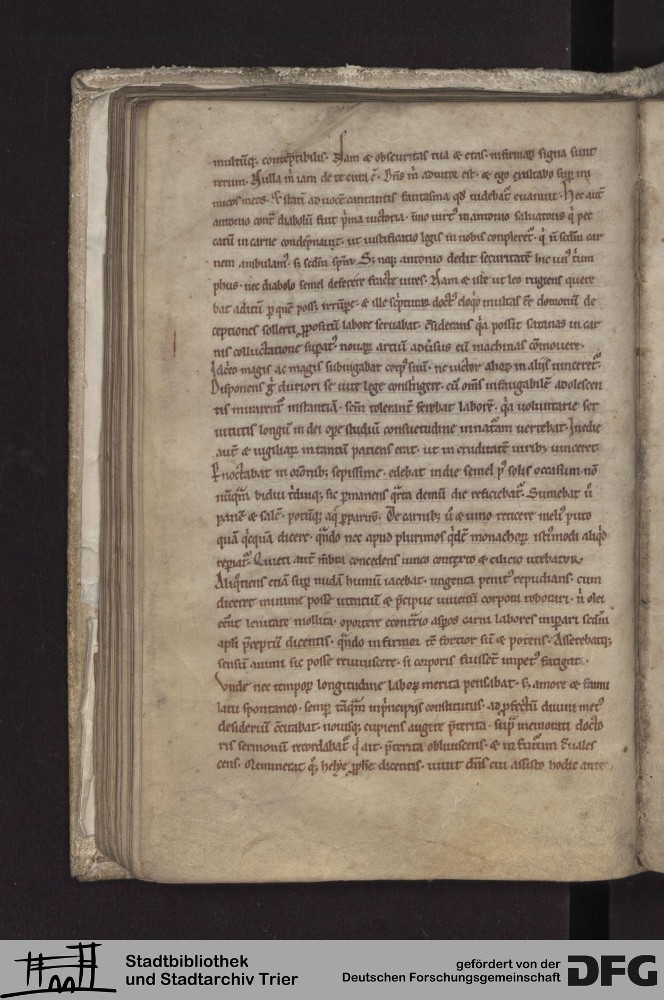 multūq; contēptibilis. Nam & obscuritas tua & etas. infirmarū signa sunt
rerum. Nulla m̄ iam de te cura ē. Dn̄s m̄ adiutor est. & ego exultabo sup ini
micos meos. Et statī ad uocē cantantis fantasma qd uidebat̄ euanuit. Hec aut̄
antonio cont̄ diabolū fuit p̄ma uictoria. īmo uirt᷒ in antonio saluatoris q̄ pec
catū in carne condēpnauit. ut iustificatio legis in nobis conpleret᷒. q̄ n̄ scd̄m car
nem ambulam᷒. s; scd̄m sp̄m. S; neq; antonio dedit securitatē hic un᷒ t̄um
phus. nec diabolo semel defecere fracte uires. Nam & iste ut leo rugiens quere
bat aditū p quē poss; irrūpe. & ille sc̄pturarū doct᷒ eloq̄o multas ēē demonū de
ceptiones sollerti p̄positū labore seruabat. 9siderans q̄a possit satanas in car
nis colluctatione supat᷒. nouarū artiū aduersus eū machinas cōmouere.
Idcirco magis ac magis subiugabat corp᷒ suū. ne uictor alior̄ in alijs uinceret᷒.
Disponens g̊ duriori se uite lege constr̄gere. cū om̄s infatigabilē adolescen
tis mirarent᷒ instantiā. sc̄m tolerant̄ ferebat laborē. q̄a uoluntarie ser
uitutis longū in dei ope studiū consuetudinē in natūram uertebat. Inedie
aut̄ & uigiliarū in tantū patiens erat. ut incredulitatē uirib; uinceret.
Pnoctabat in or̄onib; sepissime. edebat in die semel p᷒ solis occasum. nō
nūq̄m biduū t̄duūq; sic pmanens q̄rta demū die reficiebat᷒. Sumebat ū
panē & salē. potūq; aq̄ pparuū. De carnib; ū & uino reticere meli᷒ puto
quā q̄cquā dicere. q̄ndo nec apud plurimos q̄dē monachorū isti᷒modi aliq̄d
reperiat᷒. Quieti aut̄ mēbra concedens iunco contexto & cilicio utebatur.
Aliq̄tiens etiā sup nudā humū iacebat. ungenta penit᷒ repudians. cum
diceret minime posse utentiū & p̄cipue iuuenū corpora roborari. n̄ olei
eēnt lenitate mollita. oportere contrario aspos carni labores impari scd̄m
apl̄i p̄ceptū dicentis. q̄ndo infirmor tc̄ fortior sū & potens. Asserebatq;
sensū animi sic posse reuiuiscere. si corporis fuisset impet᷒ fatigat᷒.
Vnde nec temporū longitudine laborū merita pensabat. s; amore & famu
latu spontaneo. semp tāq̄m in p̄ncipijs constitutus. ad pfectū diuini met᷒
desideriū ccitabat. nouisq; cupiens augere p̄terita. sup̄ memorati docto
ris sermonū recordabat̄ q̄ ait. p̄terita obliuiscens. & in futurum cuales
cens. Reminerat q᷒; helye pph̄e dicentis. uiuit dn̄s cui assisto hodie ante
Stadtbibliothek
und Stadtarchiv Trier
gefördert von der
Deutschen Forschungsgemeinschaft
DFG